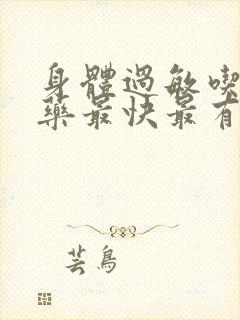 身體過敏喫
藥最快最有
芸鳥